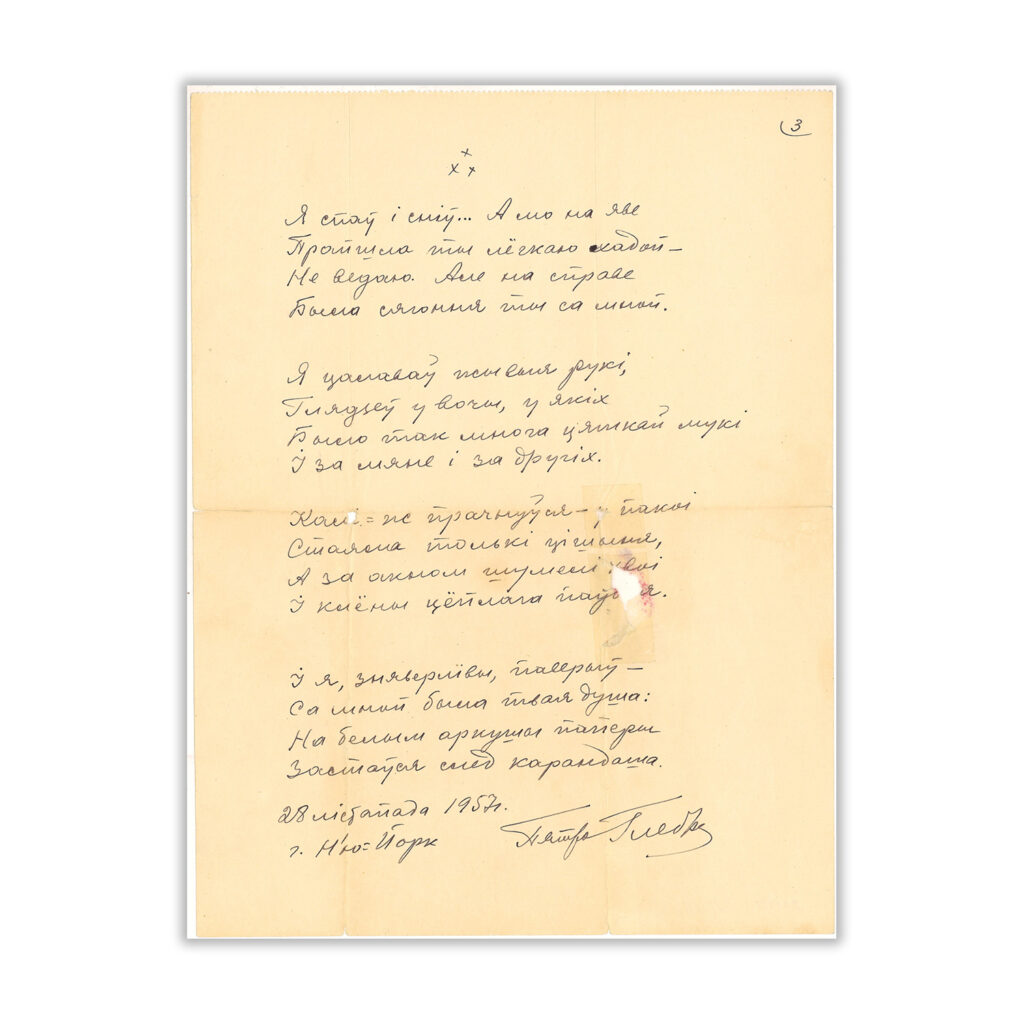 3
х
х х
Я спаў і сніў... А мо на яве
Прайшла ты лёгкаю хадой –
Не ведаю. Але на справе
Была сягоння ты са мной.
Я цалаваў жывыя рукі,
Глядзеў у вочы, у якіх
Было так многа цяжкай мукі
І за мяне і за другіх.
Калі=ж прачнуўся – у пакоі
Стаяла толькі цішыня,
А за акном шумелі хвоі
І клёны цёплага паўдня.
І я, зняверлівы, паверыў –
Са мной была твая душа:
На белым аркушы паперы
Застаўся след карандаша.
28 лістапада 1957г.
г. Н'ю=Йорк Пятро Глебка